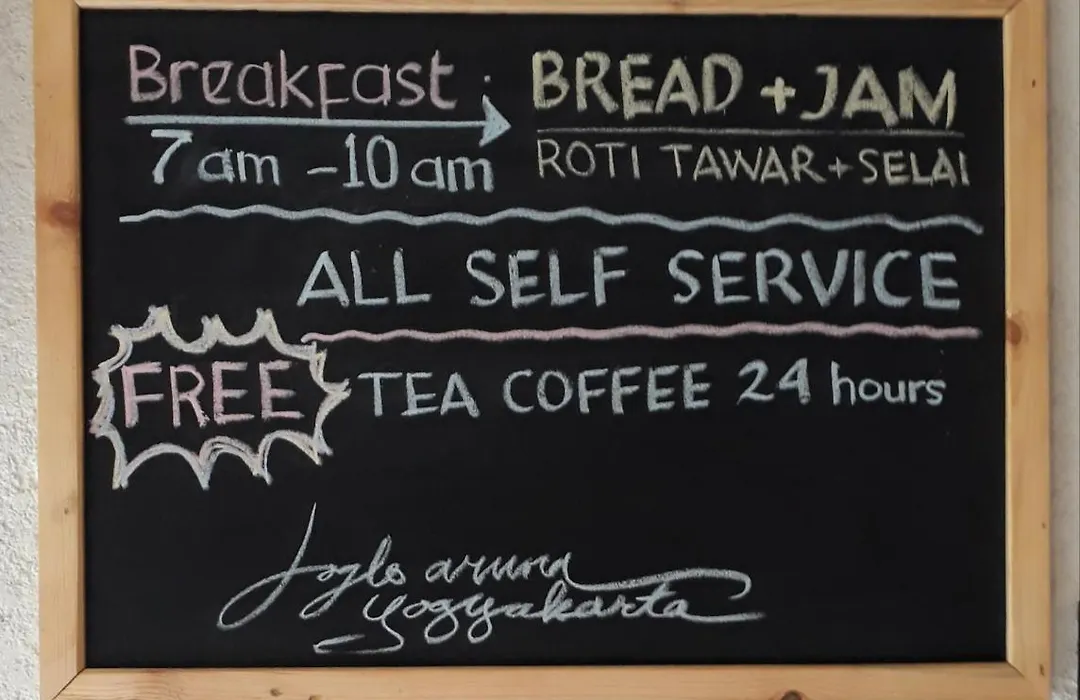 Breakfast : BREAD + JAM
7 am - 10 am ROTI TAWAR + SELAI
ALL SELF SERVICE
FREE TEA COFFEE 24 hours
Joglo aruna
Yogyakarta